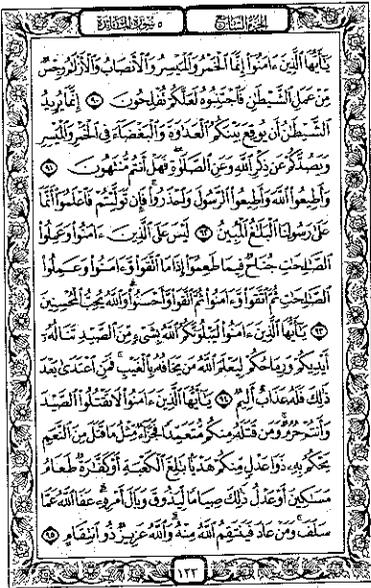 الجزء السابع
٥ سورة المائدة
يَٰٓأَيُّهَا ٱلَّذِينَ ءَامَنُوٓا۟ إِنَّمَا ٱلْخَمْرُ وَٱلْمَيْسِرُ وَٱلْأَنصَابُ وَٱلْأَزْلَٰمُ رِجْسٌ
مِّنْ عَمَلِ ٱلشَّيْطَٰنِ فَٱجْتَنِبُوهُ لَعَلَّكُمْ تُفْلِحُونَ ۝٩٠ إِنَّمَا يُرِيدُ
ٱلشَّيْطَٰنُ أَن يُوقِعَ بَيْنَكُمُ ٱلْعَدَٰوَةَ وَٱلْبَغْضَآءَ فِى ٱلْخَمْرِ وَٱلْمَيْسِرِ
وَيَصُدَّكُمْ عَن ذِكْرِ ٱللَّهِ وَعَنِ ٱلصَّلَوٰةِ فَهَلْ أَنتُم مُّنتَهُونَ ۝٩١
وَأَطِيعُوا۟ ٱللَّهَ وَأَطِيعُوا۟ ٱلرَّسُولَ وَٱحْذَرُوا۟ فَإِن تَوَلَّيْتُمْ فَٱعْلَمُوٓا۟ أَنَّمَا
عَلَىٰ رَسُولِنَا ٱلْبَلَٰغُ ٱلْمُبِينُ ۝٩٢ لَيْسَ عَلَى ٱلَّذِينَ ءَامَنُوا۟ وَعَمِلُوا۟
ٱلصَّٰلِحَٰتِ جُنَاحٌ فِيمَا طَعِمُوٓا۟ إِذَا مَا ٱتَّقَوا۟ وَّءَامَنُوا۟ وَعَمِلُوا۟
ٱلصَّٰلِحَٰتِ ثُمَّ ٱتَّقَوا۟ وَّءَامَنُوا۟ ثُمَّ ٱتَّقَوا۟ وَّأَحْسَنُوا۟ وَٱللَّهُ يُحِبُّ ٱلْمُحْسِنِينَ
۝٩٣ يَٰٓأَيُّهَا ٱلَّذِينَ ءَامَنُوا۟ لَيَبْلُوَنَّكُمُ ٱللَّهُ بِشَىْءٍ مِّنَ ٱلصَّيْدِ تَنَالُهُۥٓ
أَيْدِيكُمْ وَرِمَاحُكُمْ لِيَعْلَمَ ٱللَّهُ مَن يَخَافُهُۥ بِٱلْغَيْبِ فَمَنِ ٱعْتَدَىٰ بَعْدَ
ذَٰلِكَ فَلَهُۥ عَذَابٌ أَلِيمٌ ۝٩٤ يَٰٓأَيُّهَا ٱلَّذِينَ ءَامَنُوا۟ لَا تَقْتُلُوا۟ ٱلصَّيْدَ
وَأَنتُمْ حُرُمٌ وَمَن قَتَلَهُۥ مِنكُم مُّتَعَمِّدًا فَجَزَآءٌ مِّثْلُ مَا قَتَلَ مِنَ ٱلنَّعَمِ
يَحْكُمُ بِهِۦ ذَوَا عَدْلٍ مِّنكُمْ هَدْيًۢا بَٰلِغَ ٱلْكَعْبَةِ أَوْ كَفَّٰرَةٌ طَعَامُ
مَسَٰكِينَ أَوْ عَدْلُ ذَٰلِكَ صِيَامًا لِّيَذُوقَ وَبَالَ أَمْرِهِۦ عَفَا ٱللَّهُ عَمَّا
سَلَفَ وَمَنْ عَادَ فَيَنتَقِمُ ٱللَّهُ مِنْهُ وَٱللَّهُ عَزِيزٌ ذُو ٱنتِقَامٍ ۝٩٥
١٢٣